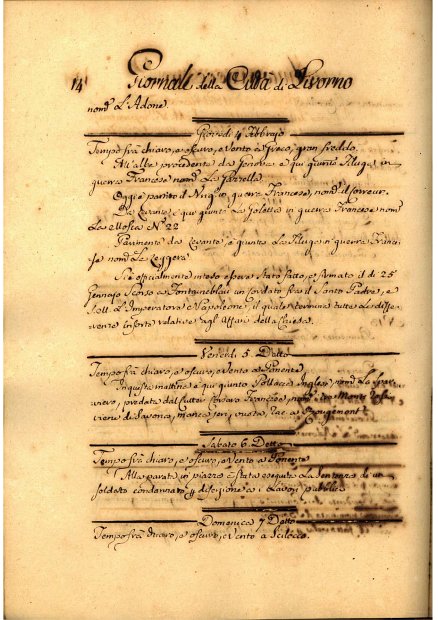 14 Giornale della Città di Livorno
nom.o L'Adone.
Giovedì 4 Febbrajo
Tempo frà chiaro, e oscuro, e vento à Greco, gran freddo.
All'alba procedente da Genova è qui giunto
guerra Francese nom.o La
Oggi è partito il Brig in guerra Francese, nom.o il
Da Levante è qui giunta La Goletta in guerra Francese nom.o
La N.o 22
Parimente da Levante, è giunta La in guerra France
se nom.o La Leggera
Si è oficialmente inteso essere stato fatto, e firmato il dì 25
Gennajo Scorso a Fontainebleau un Cordato frà il Santo Padre, e
L'Imperatore Napoleone, il quale termina tutte Le diffe
renze insorte relative agl'Affari della Chiesa.
Venerdì 5. Detto
Tempo frà chiaro, e oscuro, e vento a Ponente
In questa mattina è qui giunto Pollacca Inglese, nom.o La Spar
viero, predata dal Francese, nom.o
di Savona, manca
Sabato 6. Detto
Tempo frà chiaro, e oscuro, e vento a Ponente
Alla parata in piazza è stata eseguita La Sentenza di un
soldato condannato p. diserzione a i Lavori pubblici
Domenica 7 Detto
Tempo frà chiaro, e oscuro, e vento a Scilocco.